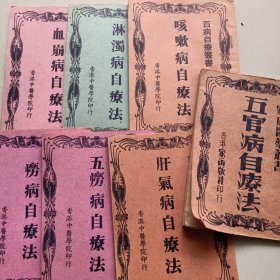 百病自療叢書
咳嗽病自療法
香港中醫學院印行
淋濁病自療法
香港中醫學院印行
血崩病自療法
香港中醫學院印行
五官病自療法
肝氣病自療法
香港中醫學院印行
五癆病自療法
香港中醫學院印行
癆病自療法
香港中醫學院印行